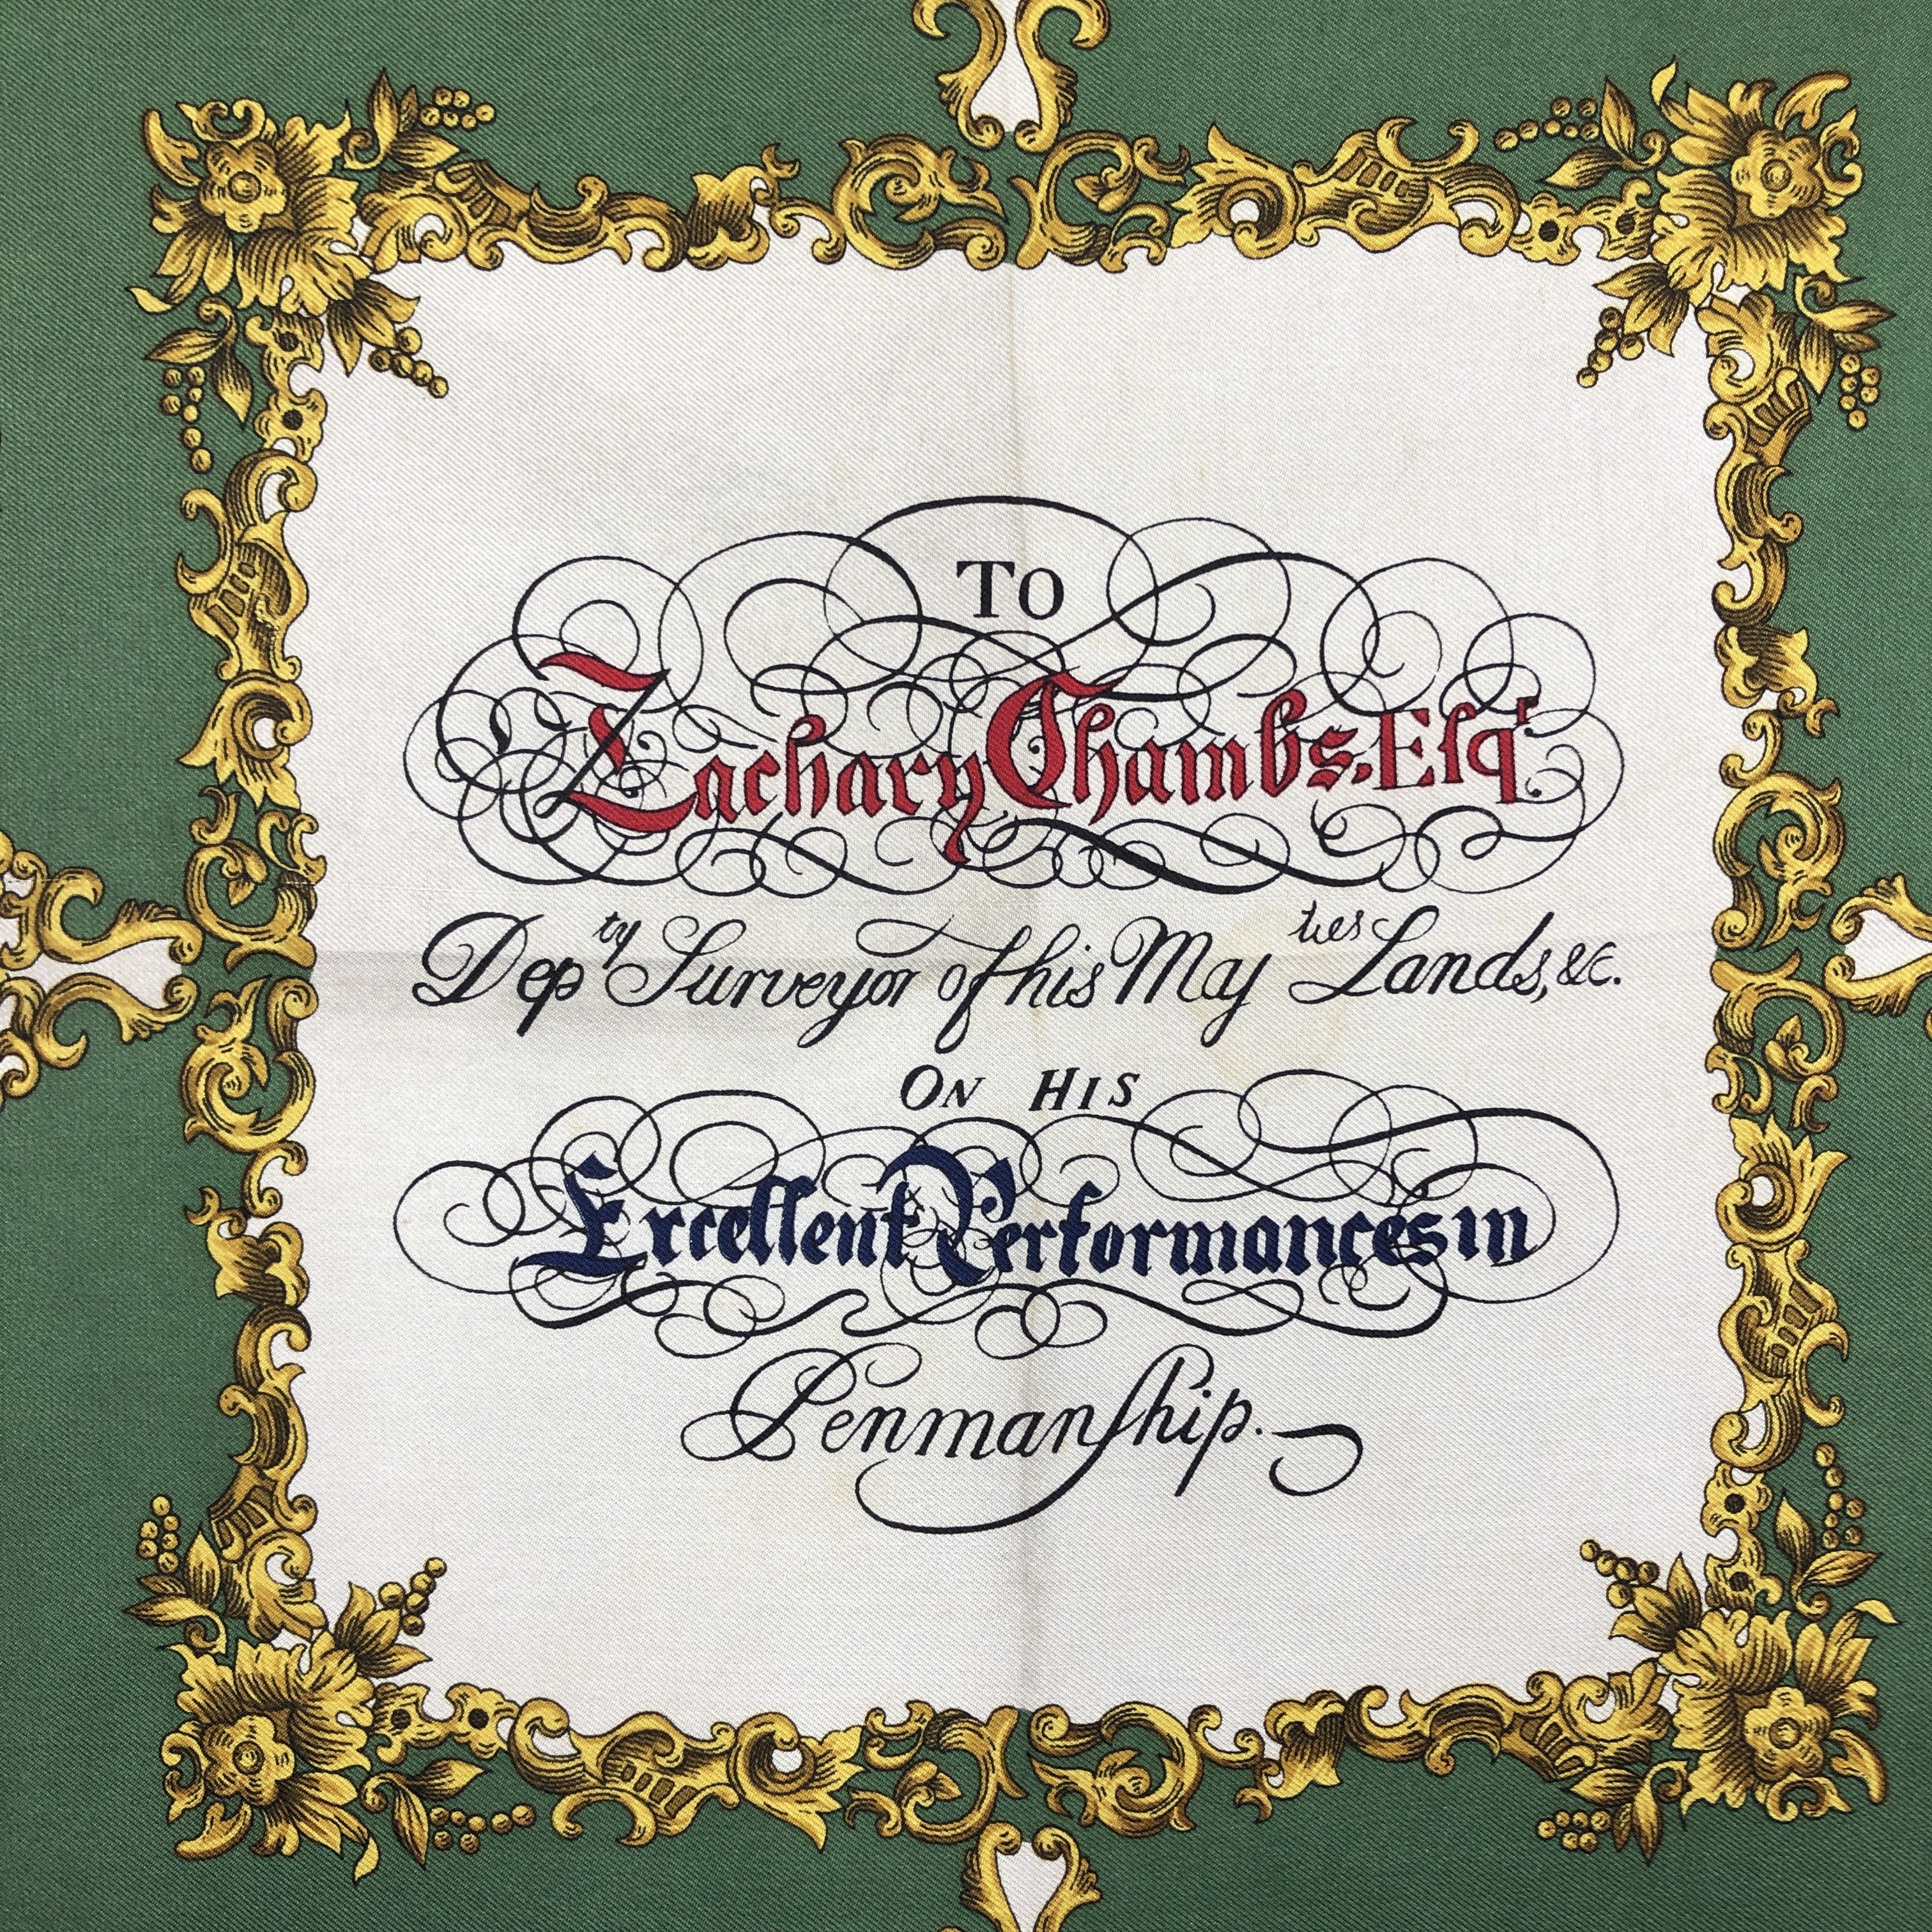 TO
Zachary Chambs, Eſqr
Depty Surveyor of his Majties Lands, &c.
ON HIS
Excellent Performances in
Penmanſhip.